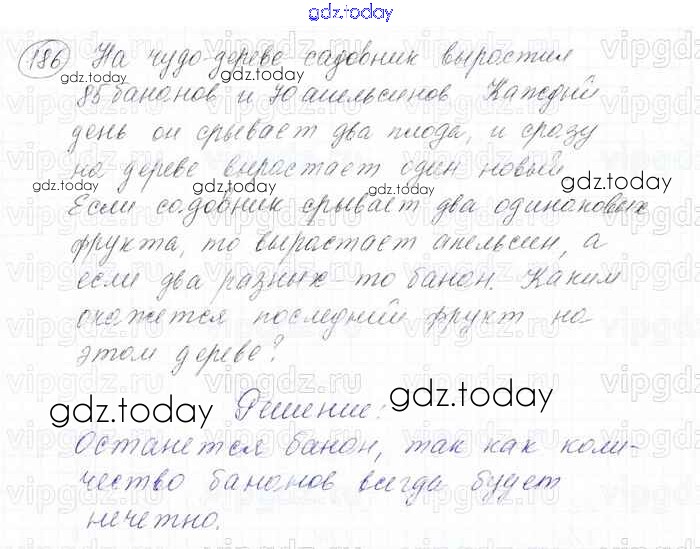 gdz.today
186 На чудо-дереве садовник вырастил
85 бананов и 70 апельсинов Каждый
день он срывает два плода, и сразу
на дереве вырастает один новый
Если садовник срывает два одинаковых
фрукта, то вырастает апельсин, а
если два разных - то банан. Каким
окажется последний фрукт на
этом дереве?
Решение:
Останется банан, так как коли-
чество бананов всегда будет
нечетно.